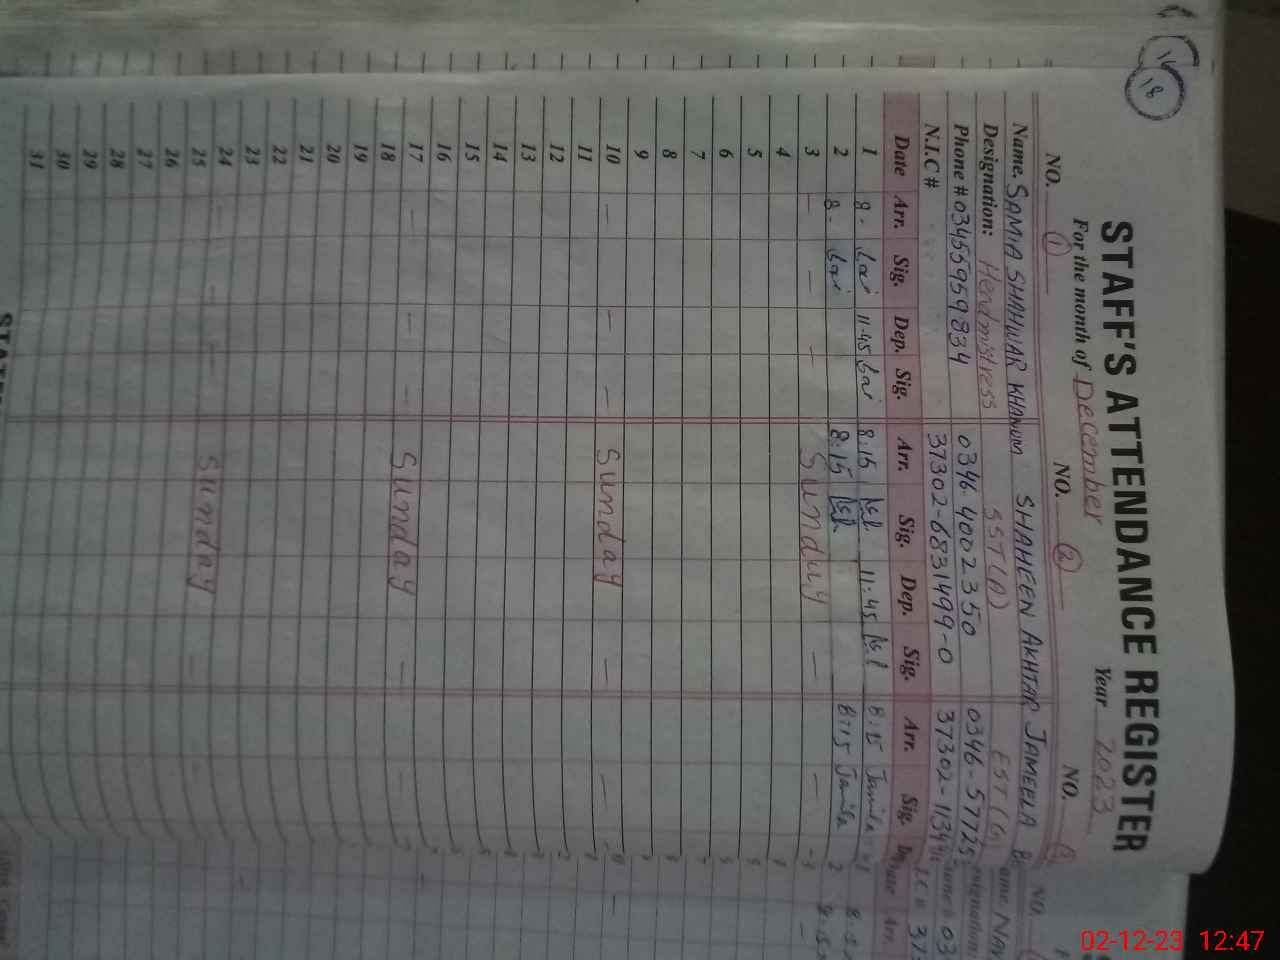 16
18
STAFF'S ATTENDANCE REGISTER
For the month of December Year 2023
NO. 1 NO. 2 NO. 3
Name. SAMIA SHAHWAR KHANUM SHAHEEN AKHTAR JAMEELA
Designation: Headmistress SST(A) EST(G)
Phone # 03455959834 0346-4002350 0346-57725
N.I.C # 37302-6831499-0 37302-1134
Date Arr. Sig. Dep. Sig. Arr. Sig. Dep. Sig. Arr. Sig.
1 8- 11-45 8:15 11:45 8:15 Jamila
2 8- 8:15 8:15 Jamila
3 — — — Sunday — —
4
5
6
7
8
9
10 — — — Sunday — —
11
12
13
14
15
16
17 — — — Sunday —
18
19
20
21
22
23
24 — — — Sunday
25
26
27
28
29
30
31
02-12-23 12:47